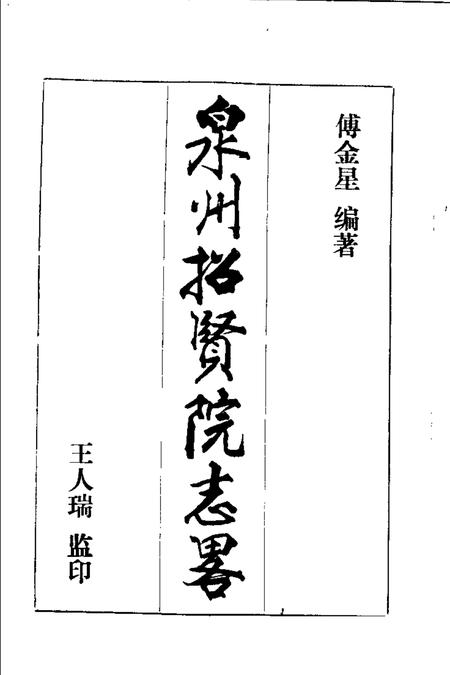 傅金星 编著
泉州招贤院志畧
王人瑞 监印